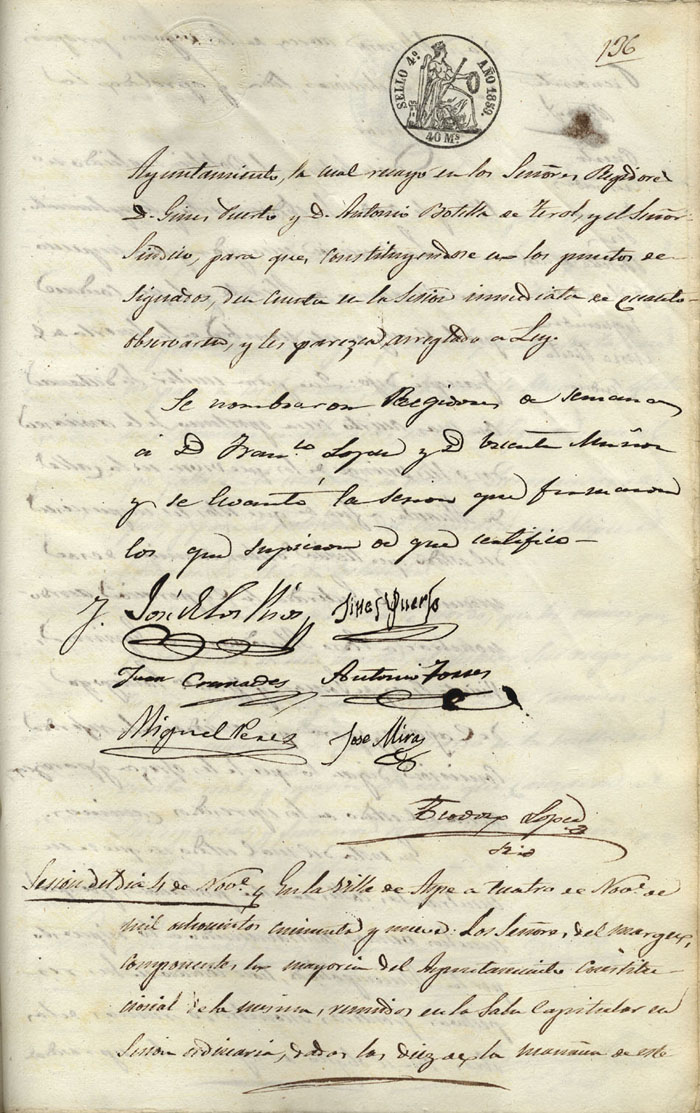 136
SELLO 4º AÑO 1859.
40 Ms.
Ayuntamiento, la cual recayo en los Señores Regidores
D. Gines Puerto y D. Antonio Botella de Terol, y el Señor
Sindico, para que, constituyendose en los puntos de
signados, den cuenta en la Sesion inmediata de cuanto
observaren, y les parezca, arreglado a Ley.
Se nombraron Regidores de semana,
á D Franco Lopez y D Vicente Muñoz
y se levantó la sesion que firmaron
los que supieron de que certifico
José de los Rios Gines Puerto
Juan Cremades Antonio Torres
Miguel Perez Jose Miras
Teodoro Lopez
Srio
Sesion del dia 4 de Nove. En la Villa de Aspe a cuatro de Nove. de
mil ochocientos cincuenta y nueve: Los Señores del margen,
componentes la mayoria del Ayuntamiento constitu
cional de la misma, reunidos en la Sala Capitular en
Sesion ordinaria, dadas las diez de la mañana de este